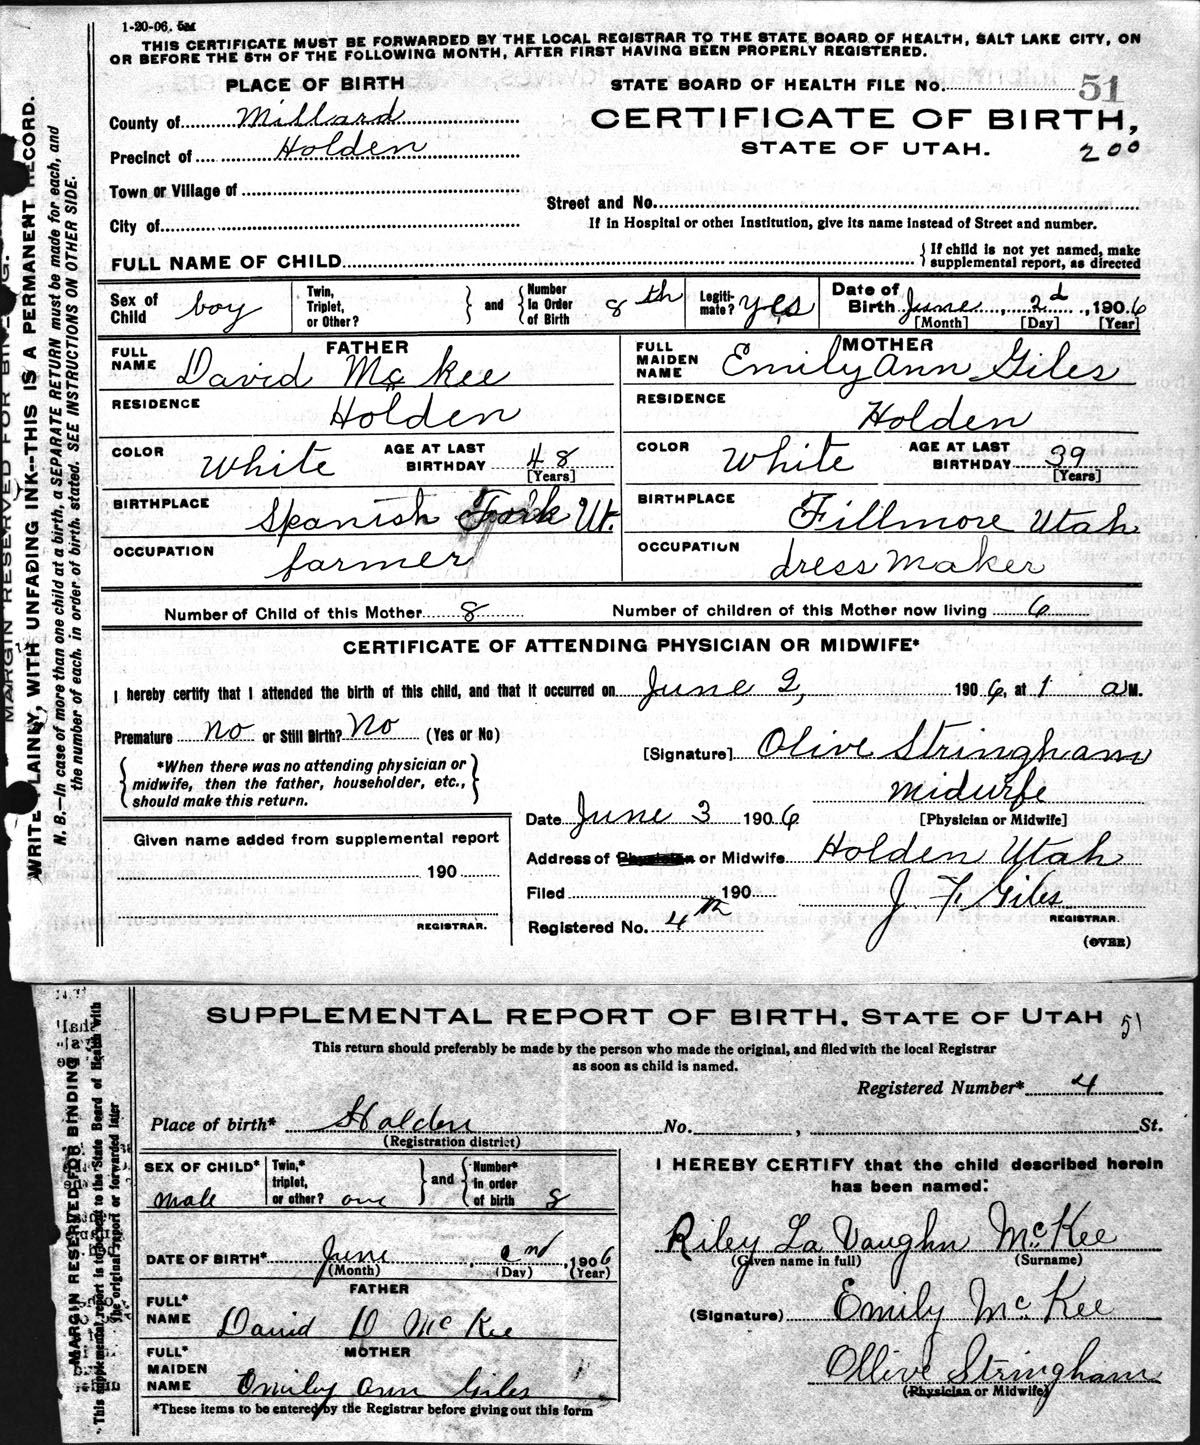 1-20-06. 5M
THIS CERTIFICATE MUST BE FORWARDED BY THE LOCAL REGISTRAR TO THE STATE BOARD OF HEALTH, SALT LAKE CITY, ON
OR BEFORE THE 5TH OF THE FOLLOWING MONTH, AFTER FIRST HAVING BEEN PROPERLY REGISTERED.
PLACE OF BIRTH
STATE BOARD OF HEALTH FILE No. 51
County of Millard
CERTIFICATE OF BIRTH,
Precinct of Holden
STATE OF UTAH.
200
Town or Village of
Street and No.
City of
If in Hospital or other Institution, give its name instead of Street and number.
FULL NAME OF CHILD
{ If child is not yet named, make
supplemental report, as directed
Sex of Child boy
Twin, Triplet, or Other? } and { Number In Order of Birth 8th
Legitimate? yes
Date of Birth June, 2d, 1906
[Month] [Day] [Year]
FATHER
FULL NAME David McKee
MOTHER
FULL MAIDEN NAME Emily Ann Giles
RESIDENCE Holden
RESIDENCE Holden
COLOR White AGE AT LAST BIRTHDAY 48 [Years]
COLOR White AGE AT LAST BIRTHDAY 39 [Years]
BIRTHPLACE Spanish Fork Ut.
BIRTHPLACE Fillmore Utah
OCCUPATION farmer
OCCUPATION dress maker
Number of Child of this Mother 8 Number of children of this Mother now living 6
CERTIFICATE OF ATTENDING PHYSICIAN OR MIDWIFE*
I hereby certify that I attended the birth of this child, and that it occurred on June 2, 1906, at 1 a M.
Premature no or Still Birth? No (Yes or No)
[Signature] Olive Stringham
*When there was no attending physician or
midwife, then the father, householder, etc.,
should make this return.
midwife
[Physician or Midwife]
Date June 3 1906
Given name added from supplemental report
190
REGISTRAR.
Address of Physician or Midwife Holden Utah
Filed 190
J. F. Giles
REGISTRAR.
Registered No. 4th
(OVER)
MARGIN RESERVED FOR
WRITE PLAINLY, WITH UNFADING INK--THIS IS A PERMANENT RECORD.
N. B.—In case of more than one child at a birth, a SEPARATE RETURN must be made for each, and
the number of each, in order of birth, stated. SEE INSTRUCTIONS ON OTHER SIDE.
SUPPLEMENTAL REPORT OF BIRTH, STATE OF UTAH 51
This return should preferably be made by the person who made the original, and filed with the local Registrar
as soon as child is named.
Registered Number* 4
Place of birth* Holden No. , St.
(Registration district)
SEX OF CHILD* male
Twin,* triplet, or other? one } and { Number* in order of birth 8
I HEREBY CERTIFY that the child described herein
has been named:
Riley La Vaughn McKee
(Given name in full) (Surname)
DATE OF BIRTH* June, 2nd, 1906
(Month) (Day) (Year)
FATHER
FULL* NAME David D McKee
(Signature) Emily McKee
MOTHER
FULL* MAIDEN NAME Emily Ann Giles
Ollive Stringham
(Physician or Midwife)
*These items to be entered by the Registrar before giving out this form
MARGIN RESERVED FOR BINDING
This supplemental report is to be sent to the State Board of Health with
the original report or forwarded later